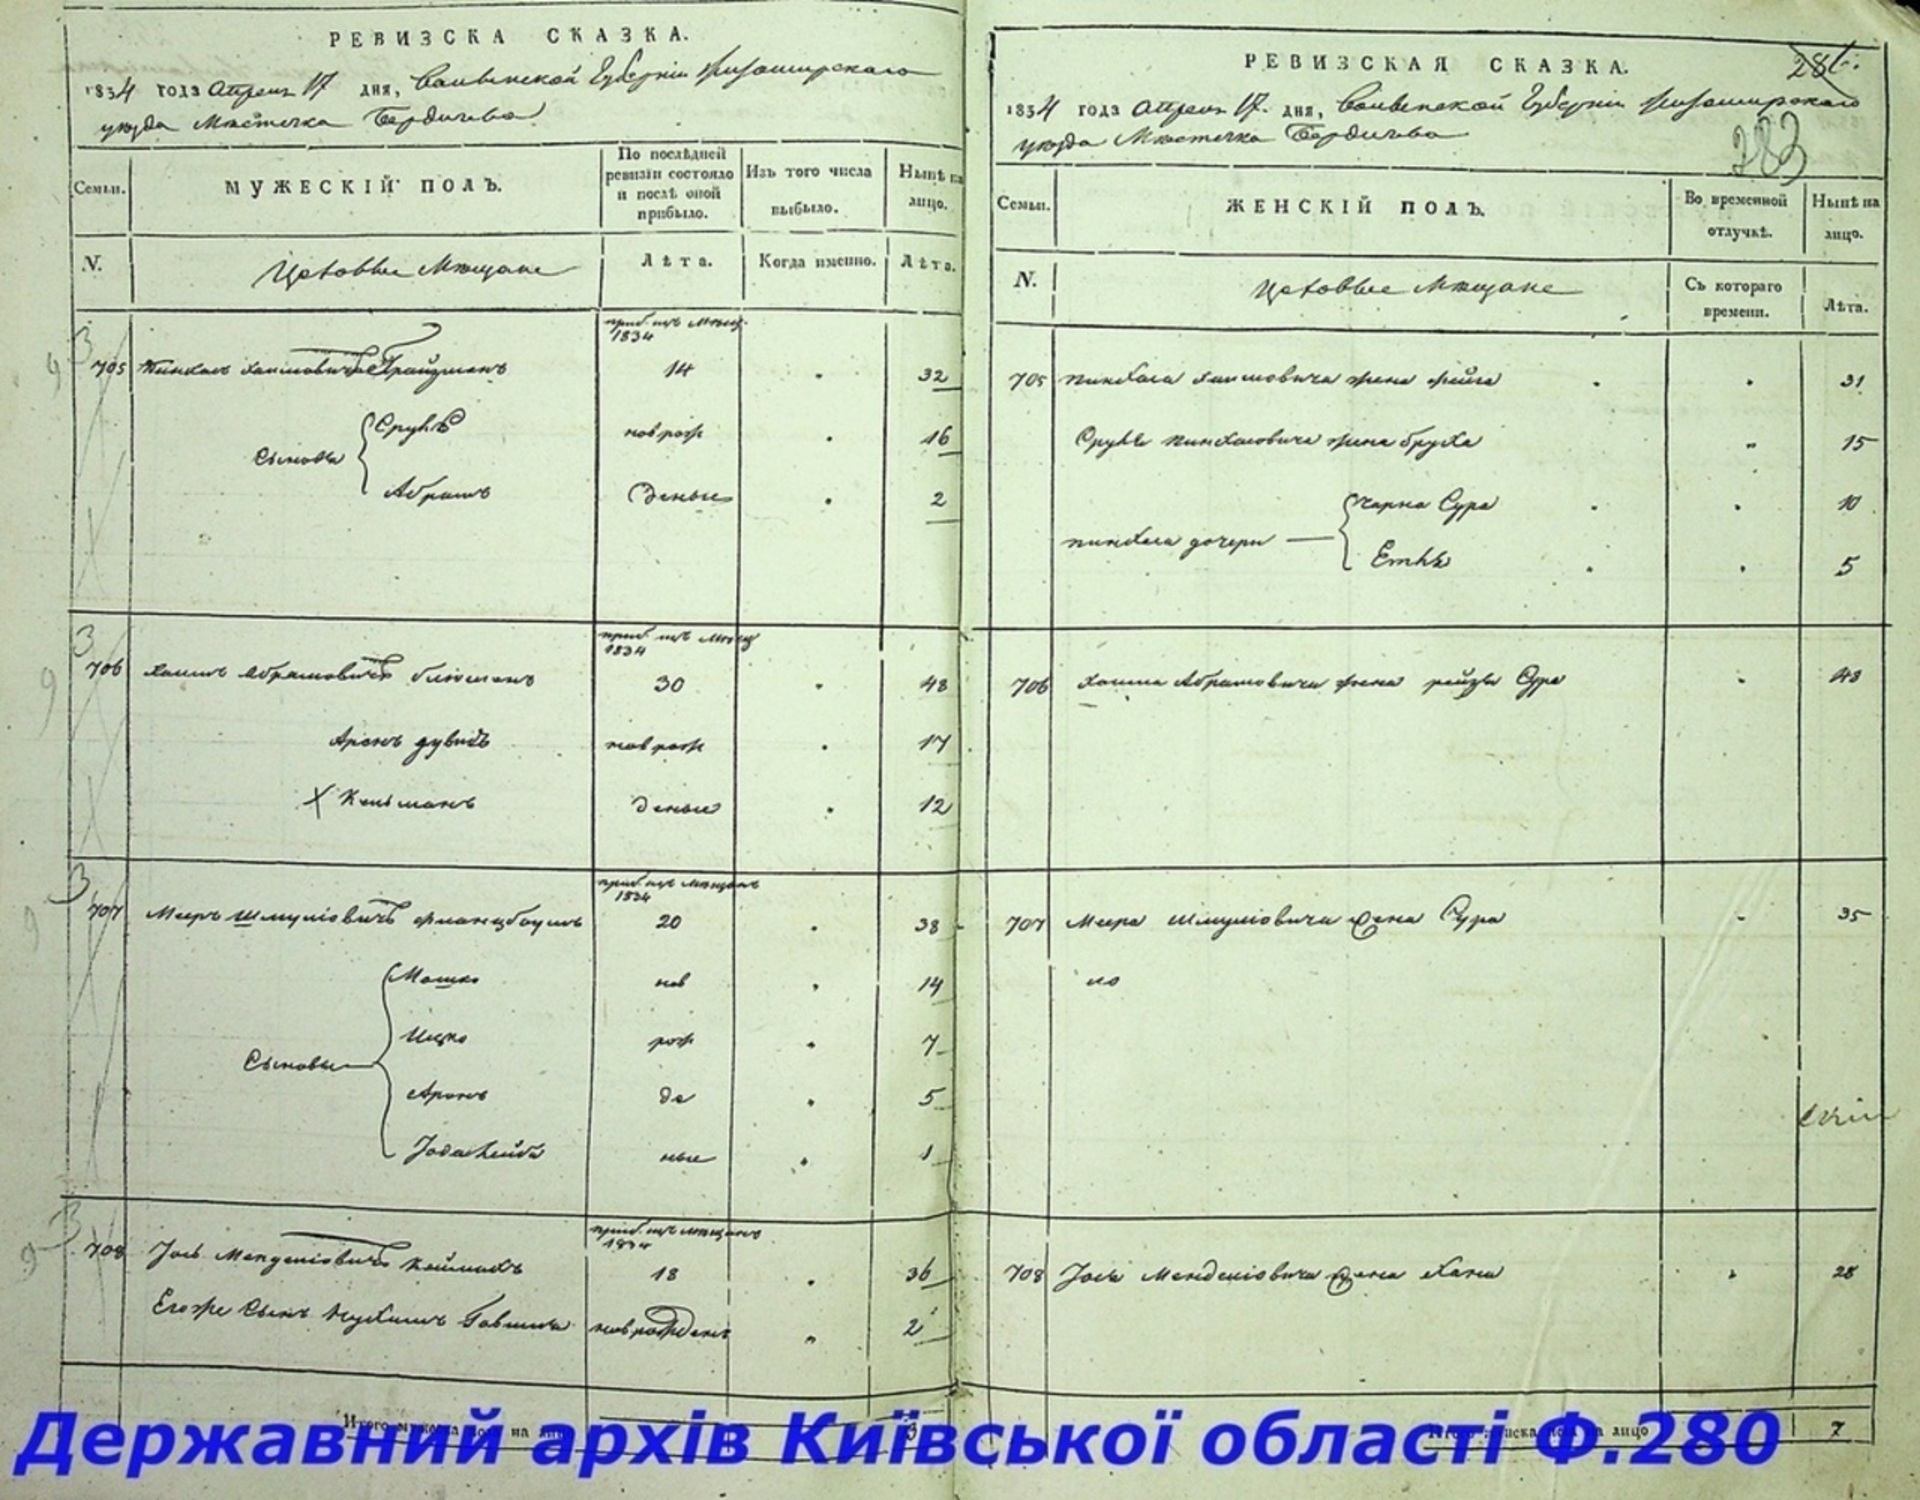 РЕВИЗСКА СКАЗКА.
1834 года Апреля 17 дня, Волынской Губернии Житомирского
уезда Местечка Бердичева
Семьи.
МУЖЕСКІЙ ПОЛЪ.
По послѣдней ревизіи состояло и послѣ оной прибыло.
Изъ того числа выбыло.
Нынѣ на лицо.
N.
Цеховые Мещане
Лѣта.
Когда именно.
Лѣта.
приб. изъ Мещ.
1834
705 Пинхасъ Хаимовичъ 14 32
Сыновья
Сруль новрож 16
Абрамъ деные 2
приб. изъ Мещ
1834
706 Хаимъ Абрамовичъ 30 48
Аронъ Дувидъ новрож 17
Кельманъ деные 12
приб. изъ Мещанъ
1834
707 Мееръ Шмуліовичъ 20 38
Сыновья
Мошко нов 14
Ицко рож 7
Аронъ де 5
ные 1
приб. изъ Мещанъ
1834
708 Іось Менделіовичъ 18 36
Егоже Сынъ новрожден 2
Итого мужеска пола на лицо
РЕВИЗСКАЯ СКАЗКА.
286.
1834 года Апреля 17. дня, Волынской Губерніи Житомирского
уезда Местечка Бердичева
283
Семьи.
ЖЕНСКІЙ ПОЛЪ.
Во временной отлучкѣ.
Нынѣ на лицо.
N.
Цеховые Мещане
Съ котораго времени.
Лѣта.
705 Пинхаса Хаимовича жена Фейга 31
Сруля Пинхасовича жена Бруха 15
Чарна Сура 10
Пинхаса дочери
Етля 5
706 Хаима Абрамовича жена Рейзя Сура 48
707 Меера Шмуліовича жена Сура 35
708 Іося Менделіовича жена Хана 28
Итого женска пола на лицо 7
Державний архів Київської області Ф.280